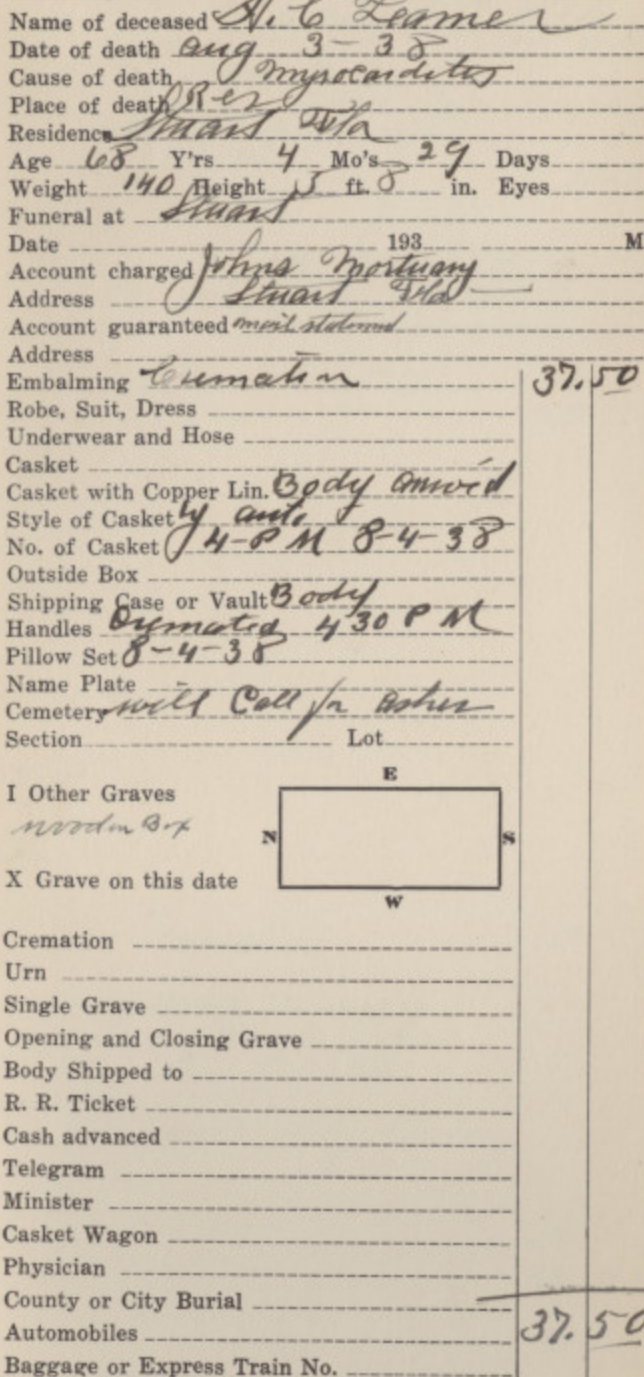 Name of deceased H. C Leamer
Date of death Aug 3-38
Cause of death Myrocarditis
Place of death Res
Residence Stuart Fla
Age 68 Y'rs 4 Mo's 29 Days
Weight 140 Height 5 ft. 8 in. Eyes
Funeral at Stuart
Date 193 M
Account charged Johns Mortuary
Address Stuart Fla
Account guaranteed mail statement
Address
Embalming Cremation 37.50
Robe, Suit, Dress
Underwear and Hose
Casket
Casket with Copper Lin. Body
Style of Casket by auto
No. of Casket 4-PM 8-4-38
Outside Box
Shipping Case or Vault Body
Handles Cremated 430 PM
Pillow Set 8-4-38
Name Plate
Cemetery will Call for ashes
Section Lot
E
I Other Graves
wooden Box
N S
X Grave on this date
W
Cremation
Urn
Single Grave
Opening and Closing Grave
Body Shipped to
R. R. Ticket
Cash advanced
Telegram
Minister
Casket Wagon
Physician
County or City Burial
Automobiles 37.50
Baggage or Express Train No.